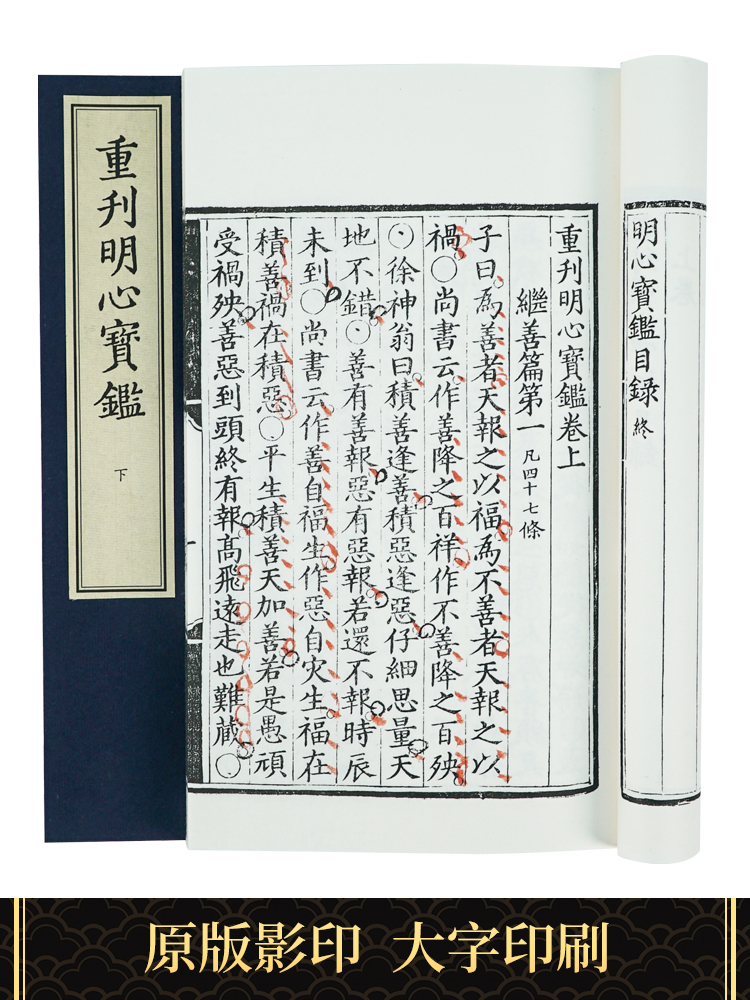 明心寶鑑目錄終
重刊明心寶鑑卷上
繼善篇第一 凡四十七條
子曰為善者天報之以福為不善者天報之以
禍〇尚書云作善降之百祥作不善降之百殃
〇徐神翁曰積善逢善積惡逢惡仔細思量天
地不錯〇善有善報惡有惡報若還不報時辰
未到〇尚書云作善自福生作惡自灾生福在
積善禍在積惡〇平生積善天加善若是愚頑
受禍殃善惡到頭終有報髙飛遠走也難藏〇
重刊明心寶鑑
下
原版影印 大字印刷